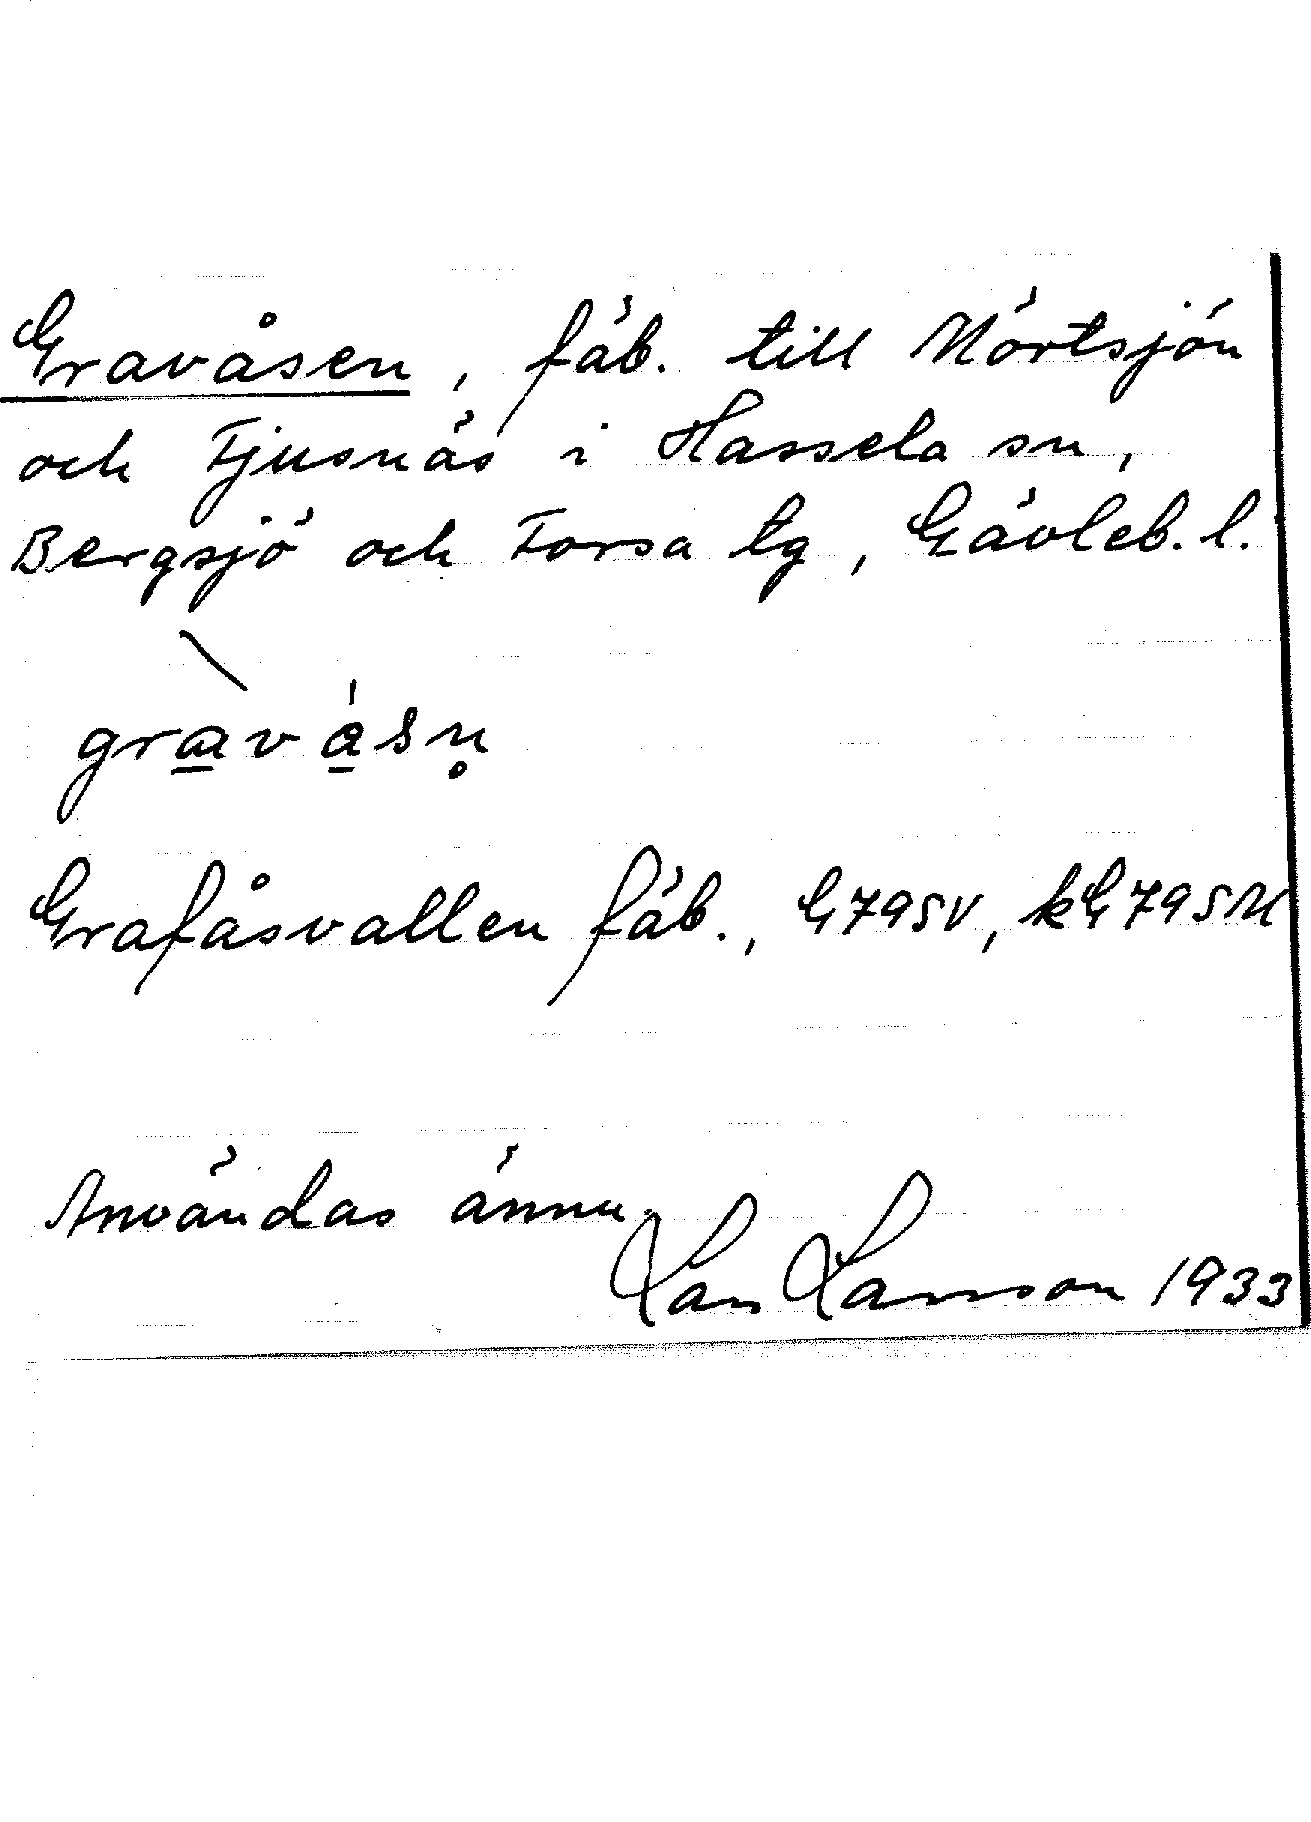 Gravåsen, fäb. till Mörtsjön
och Fjusnäs i Hassela sn,
Bergsjö och Forsa tg, Gävleb. l.
gravåsn̥
Grafåsvallen fäb., G795V, kG795M
Användas ännu.
Lars Larsson 1933